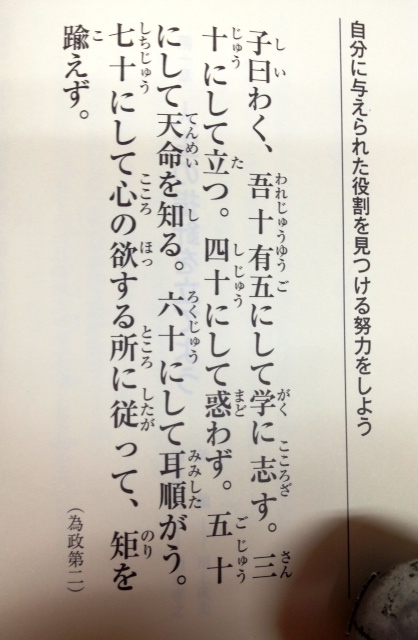 自分に与えられた役割を見つける努力をしよう
子曰わく、吾十有五にして学に志す。三
十にして立つ。四十にして惑わず。五十
にして天命を知る。六十にして耳順がう。
七十にして心の欲する所に従って、矩を
踰えず。
（為政第二）